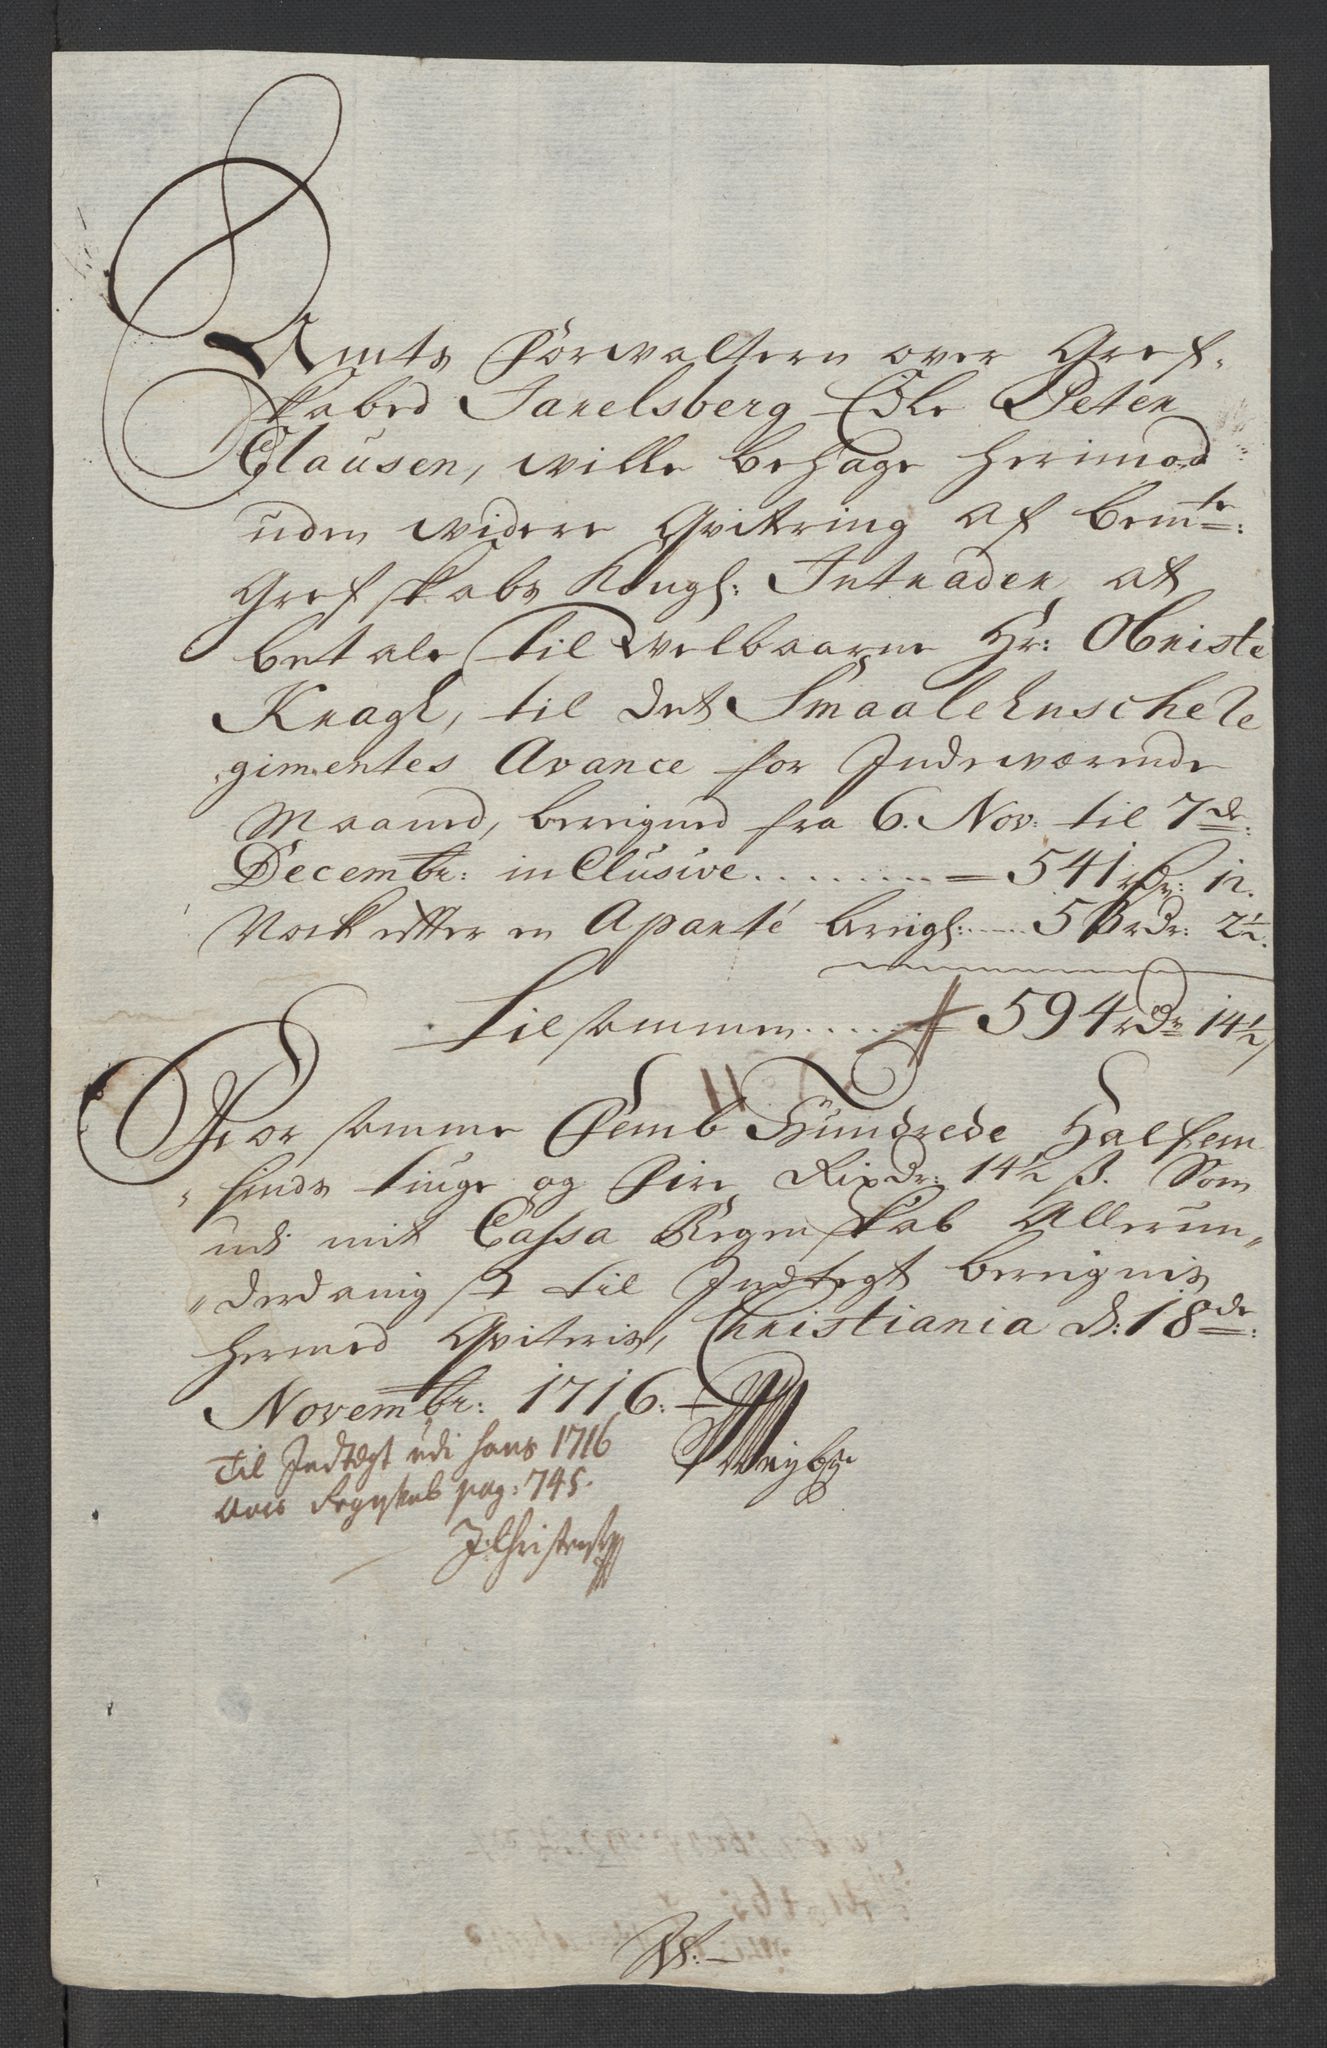 Amts Forvaltern over Gref-
skabed Jarelsberg Edle Peter
Clausen, wille behage herimod
uden widere Qvittring af bemte:
Grefskabs Kongl: Intrader at
betale til welbaarne Hr: Obriste
Kragh, til det Smaalehnsche Re
gimentes Avance for Indeværende
Maaned, bereigned fra 6. Nov: til 7de:
Decembr: inClusive ........ = 541 rdr: 12.
Nock efter en Aparte beregh: ..... 53 rdr: 2½.
Tilsammen ..... 594 rdr 14½
Hvor somme Femb Hundrede Halfem
"sinds tiuge og Fire Rixdr: 14½ ß. Som
udi mit Cassa Regenskab Allerun"
"derdanigst til Indtegt bereignis
hermed Qviteris, Christiania d: 18de:
Novembr: 1716.
Til Indtegt udi hans 1716
Aars Regnskab pag: 745.
J Christens